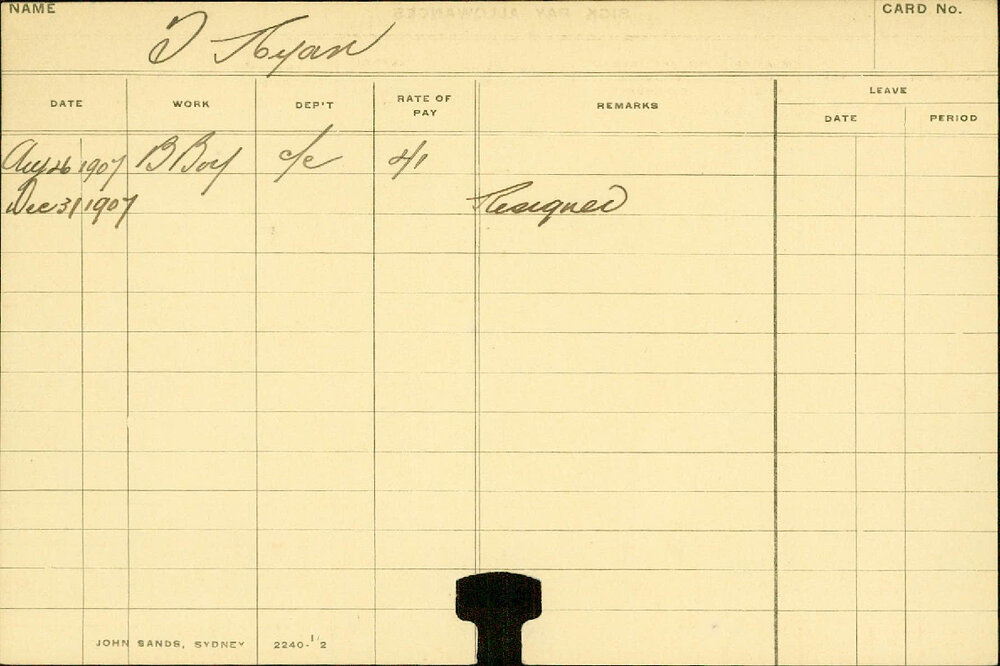 NAME
CARD No.
Ryan
DATE WORK DEP'T RATE OF PAY REMARKS LEAVE
DATE PERIOD
Aug 26 1907 B Boy c/c
Dec 31 1907 Resigned
JOHN SANDS, SYDNEY 2240-1/2